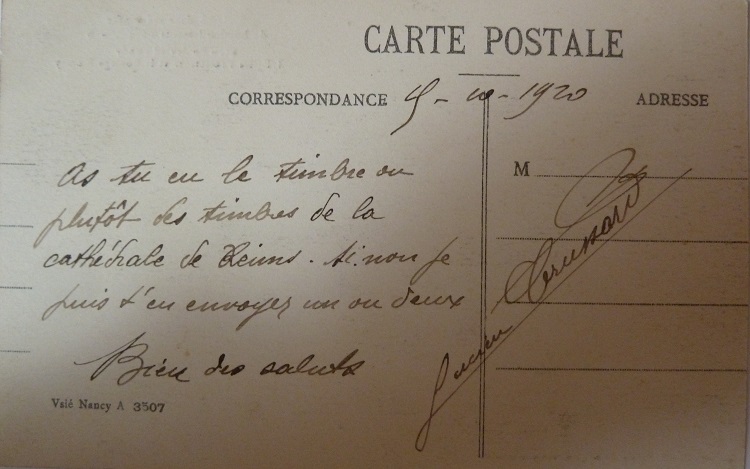 CARTE POSTALE
CORRESPONDANCE
ADRESSE
- 10 - 1920
M
As tu eu le timbre ou
plutôt des timbres de la
cathédrale de Reims. Si non je
puis t'en envoyer un ou deux
Bien des saluts
Lucien
Visé Nancy A 3507